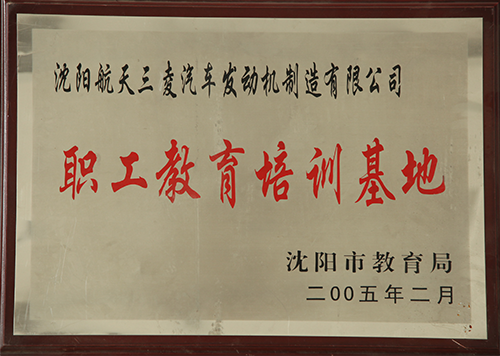 沈阳航天三菱汽车发动机制造有限公司
职工教育培训基地
沈阳市教育局
二00五年二月